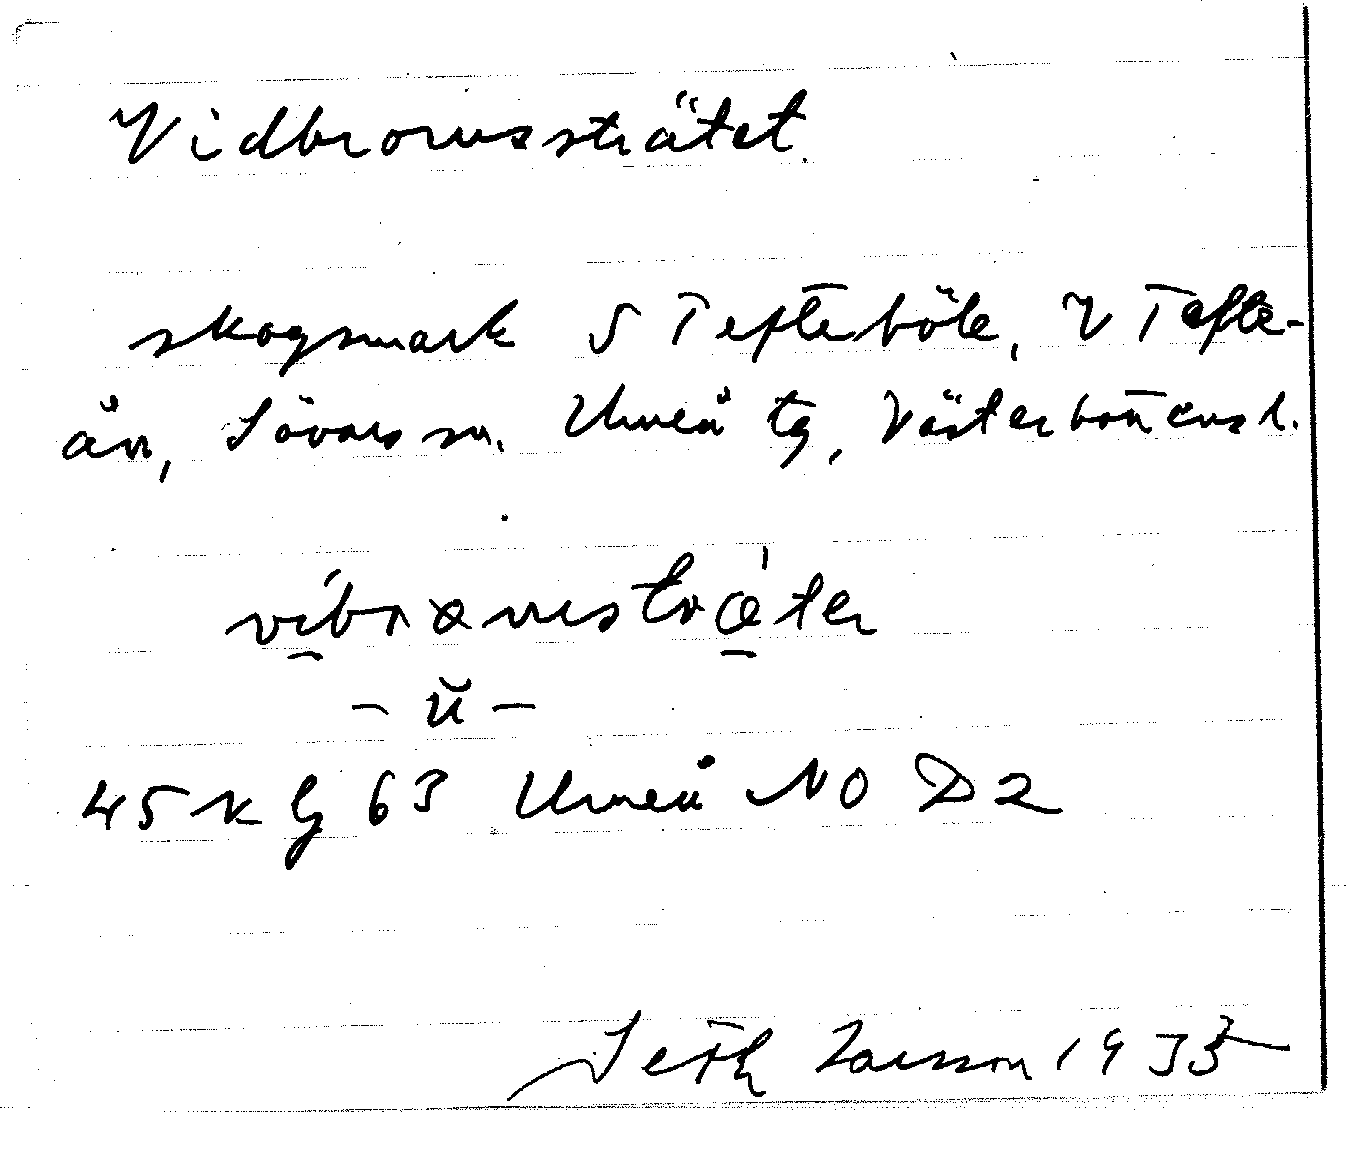 Vidbrounssträtet
skogsmark S Tefteböle, V Tefte-
ån, Sävars sn. Umeå tg, Västerbottens l.
– ŭ –
45 k G 63 Umeå NO D2
Seth Larsson 1935